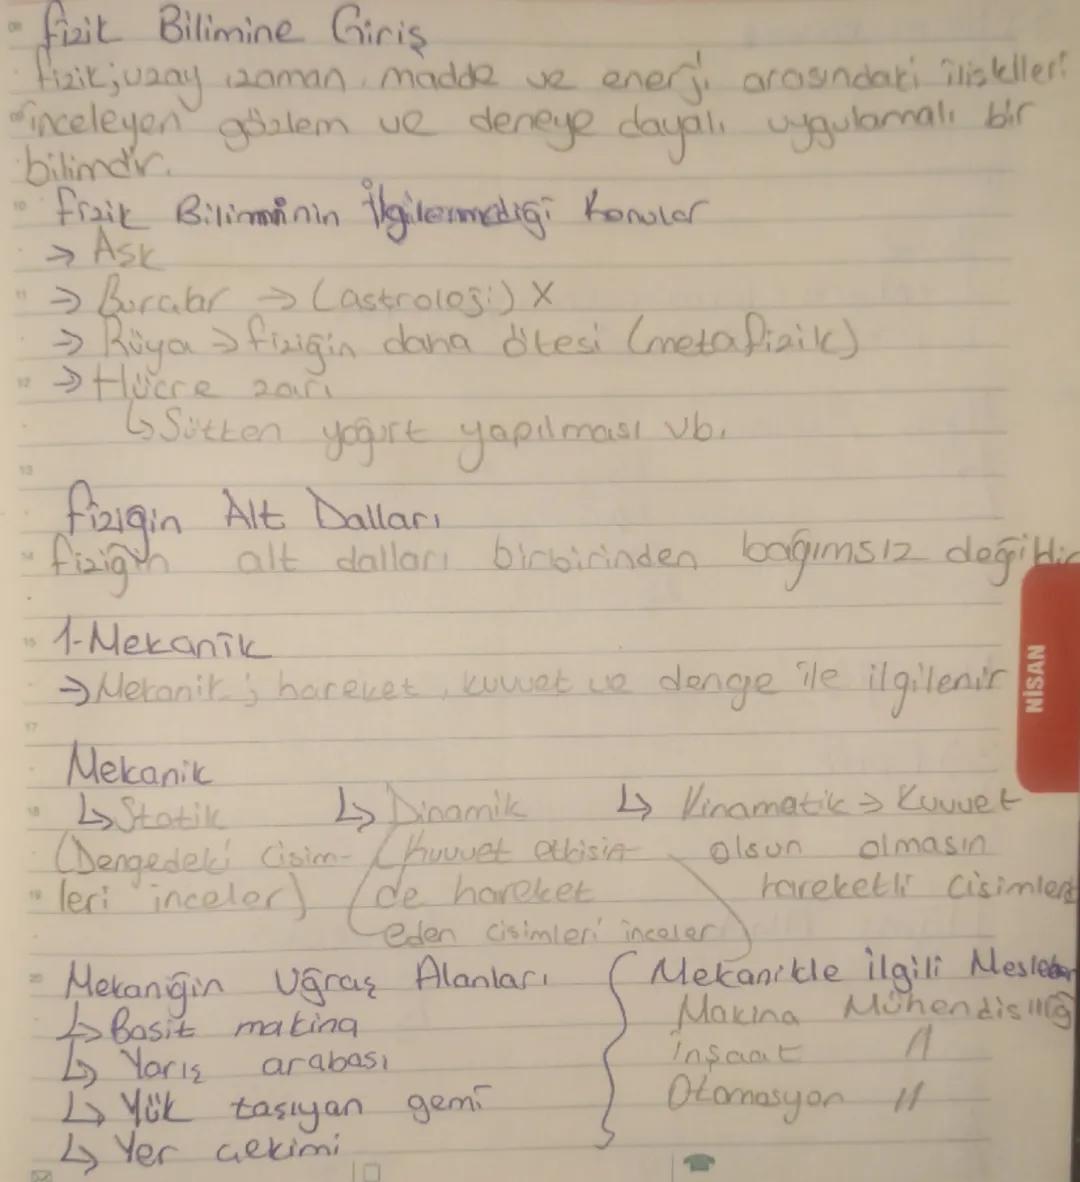 Fizik Bilimine Giriş
Fizik; uzay, zaman, madde ve enerji arasındaki ilişkileri
inceleyen gözlem ve deneye dayalı uygulamalı bir
bilimdir.
Fizik Biliminin İlgilenmediği Konular
→ Aşk
→ Burçlar → (astroloji) X
→ Rüya → fiziğin daha ötesi (metafizik)
→ Hücre zarı
↳ Sütten yoğurt yapılması vb.
Fiziğin Alt Dalları
Fiziğin alt dalları birbirinden bağımsız değildir
1-Mekanik
→ Mekanik; hareket, kuvvet ve denge ile ilgilenir
NİSAN
Mekanik
↳ Statik ↳ Dinamik ↳ Kinamatik → Kuvvet
(Dengedeki cisim- (kuvvet etkisin- olsun olmasın
leri inceler) de hareket hareketli cisimleri
eden cisimleri inceler)
Mekaniğin Uğraş Alanları
↳ Basit makina
↳ Yarış arabası
↳ Yük taşıyan gemi
↳ Yer çekimi
Mekanikle ilgili Meslekler
Makina Mühendisliği
İnşaat "
Otomasyon "
09
10
11
12
13
14
15
17
18
19
20